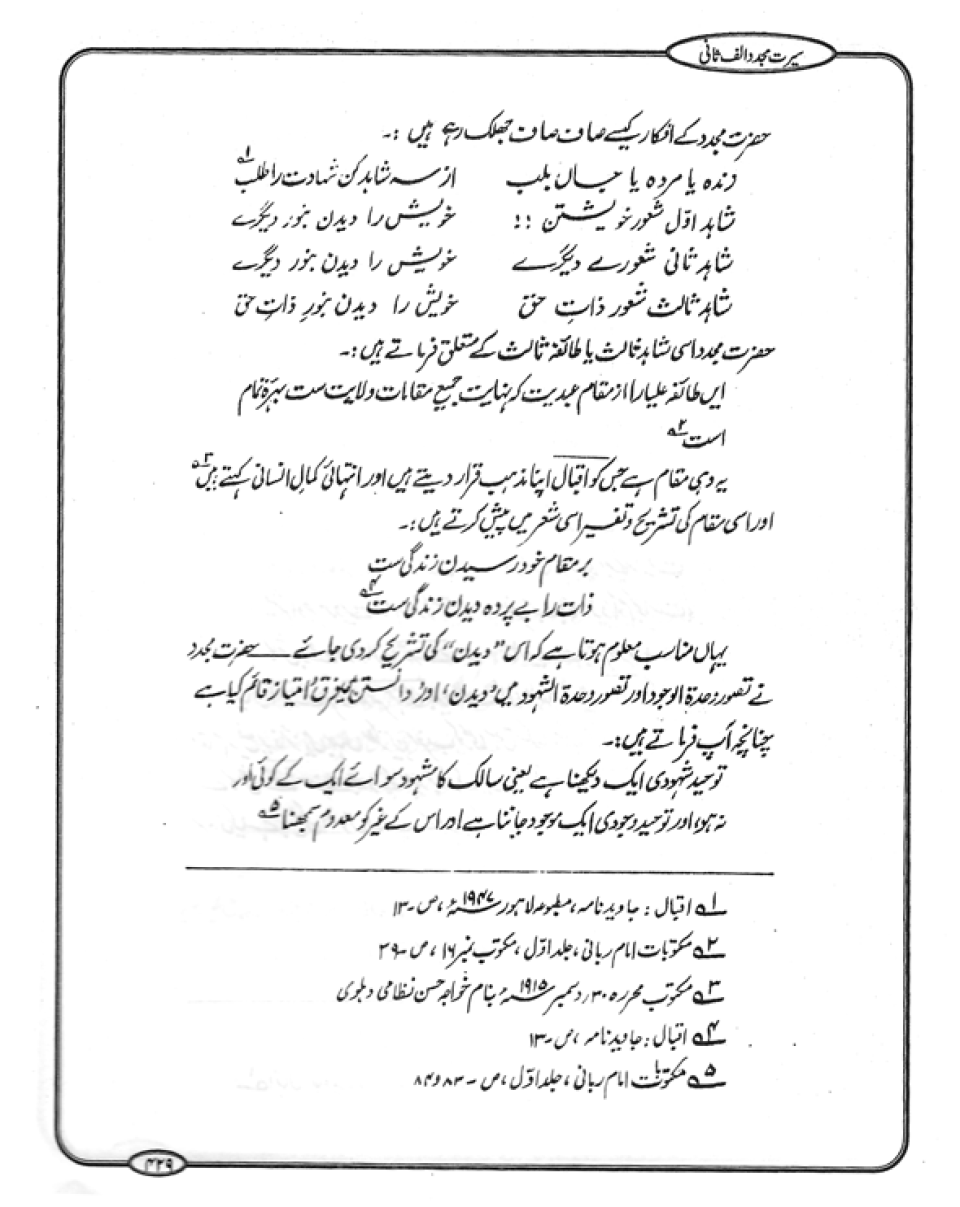 سیرت مجدد الف ثانی
حضرت مجدد کے افکار کیسے صاف صاف جھلک رہے ہیں :۔
زندہ یا مردہ یا جاں بلب از سہ شاہد کن شہادت را طلب ۱ے
شاہد اوّل شعور خویشتن !! خویش را دیدن بنور دیگرے
شاہد ثانی شعورے دیگرے خویش را دیدن بنور دیگرے
شاہد ثالث شعور ذاتِ حق خویش را دیدن بنورِ ذاتِ حق
حضرت مجدد اسی شاہد ثالث یا طائفۂ ثالث کے متعلق فرماتے ہیں :۔
ایں طائفہ علیا را از مقام عبدیت کہ نہایت جمیع مقامات ولایت ست بہرۂ تمام
است ۲ے
یہ وہی مقام ہے جس کو اقبال اپنا مذہب قرار دیتے ہیں اور انتہائی کمالِ انسانی کہتے ہیں ۳ے
اور اسی مقام کی تشریح و تفسیر اسی شعر میں پیش کرتے ہیں :۔
بر مقام خود رسیدن زندگی ست
ذات را بے پردہ دیدن زندگی ست ۴ے
یہاں مناسب معلوم ہوتا ہے کہ اس "دیدن" کی تشریح کر دی جائے ــــ حضرت مجدد
نے تصور وحدۃ الوجود اور تصور وحدۃ الشہود میں "دیدن" اور "دانستن" میں فرق و امتیاز قائم کیا ہے
چنانچہ آپ فرماتے ہیں :۔
توحید شہودی ایک دیکھنا ہے یعنی سالک کا مشہود سوائے ایک کے کوئی اور
نہ ہو، اور توحید وجودی ایک موجود جاننا ہے اور اس کے غیر کو معدوم سمجھنا ۵ے
۱ے اقبال : جاوید نامہ، مطبوعہ لاہور ۱۹۴۷ء، ص۔۱۳
۲ے مکتوبات امام ربانی، جلد اوّل، مکتوب نمبر ۱۶، ص۔۳۹
۳ے مکتوب محررہ ۳۰؍ دسمبر ۱۹۱۵ء بنام خواجہ حسن نظامی دہلوی
۴ے اقبال : جاوید نامہ، ص۔۱۳
۵ے مکتوبات امام ربانی، جلد اوّل، ص۔ ۸۳ و ۸۴
۴۲۹